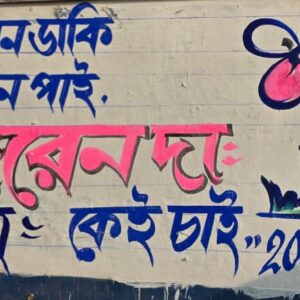 ডাকি
পাই.
রেন দাঃ
কেই চাই"
20